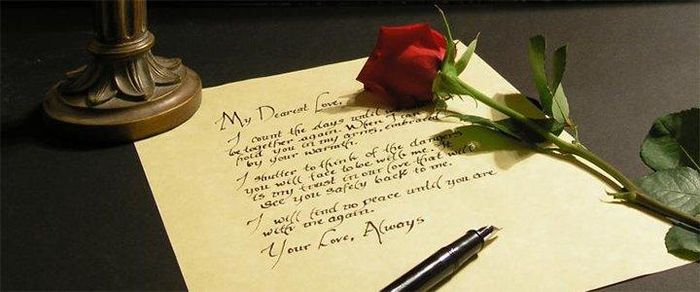 My Dearest Love,
I count the days until
be together again. When I can
hold you in my arms, embraced
by your warmth.
I shutter to think of the dangers
you will face to be with me. It
is my trust in our love that will
see you safely back to me.
I will find no peace until you are
with me again.
Your Love, Always